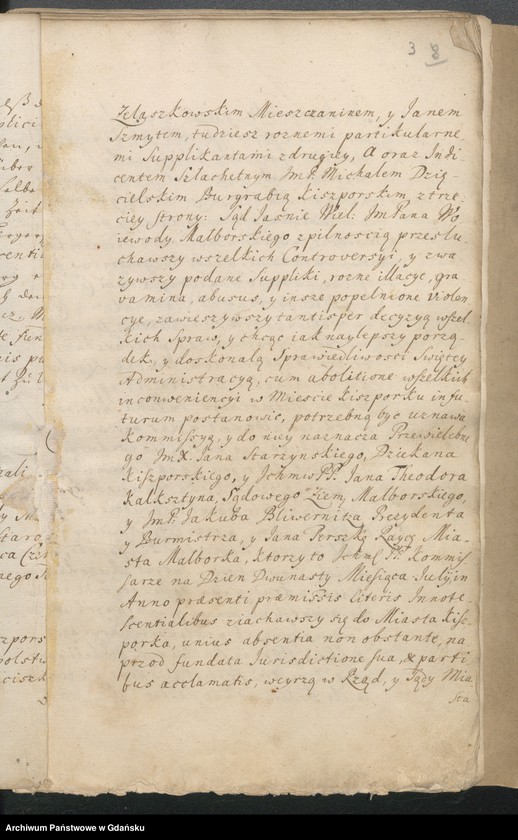 3 8
Zelaszkowskim Mieszczaninem, y Janem
Szmytem, tudziesz roznemi partikularne-
mi Supplikantami z drugiey, A oraz Indi-
centem Szlachetnym ImP. Michałem Dzię-
cielskim Burgrabią Kiszporskim z trze-
ciey strony: Sąd Jasnie Wiel: ImPana Wo
iewody Malborskiego z pilnoscią przesłu-
chawszy wszelkich Controversyi, y zwa
zywszy podane Suppliki, rozne illacye, gra
vamina, abusus, y insze popełnione violen-
cye, zawieszywszy tantisper decyzyą wszel-
kich Spraw, y chcąc iak naylepszy porzą-
dek, y doskonałą Sprawiedliwosci Swiętey
Administracyą, cum abolitione wszelkich
inconveniencyi w Miescie Kiszporku in fu-
turum postanowic, potrzebną byc uznawa
Kommissyą, y do niey naznacza Przewielebne
go ImX. Jana Starzynskiego, Dziekana
Kiszporskiego, y Ichmw PP. Jana Theodora
Kalksztyna, Sądowego Ziem: Malborskiego,
y ImP. Jakuba Bliwernitza Prezydenta
y Burmistrza, y Jana Ferszke Raycę Mia-
sta Malborka, ktorzy to Ichm PP. Kommis
sarze na Dzien Dwunasty Miesiąca Julij in
Anno præsenti præmissis literis Innote-
scentialibus ziachawszy się do Miasta Kisz-
porka, unius absentia non obstante, na
przod fundata Jurisdictione sua, & parti
bus acclamatis, weyrzą w Rząd, y Sądy Mia
sta
Archiwum Państwowe w Gdańsku